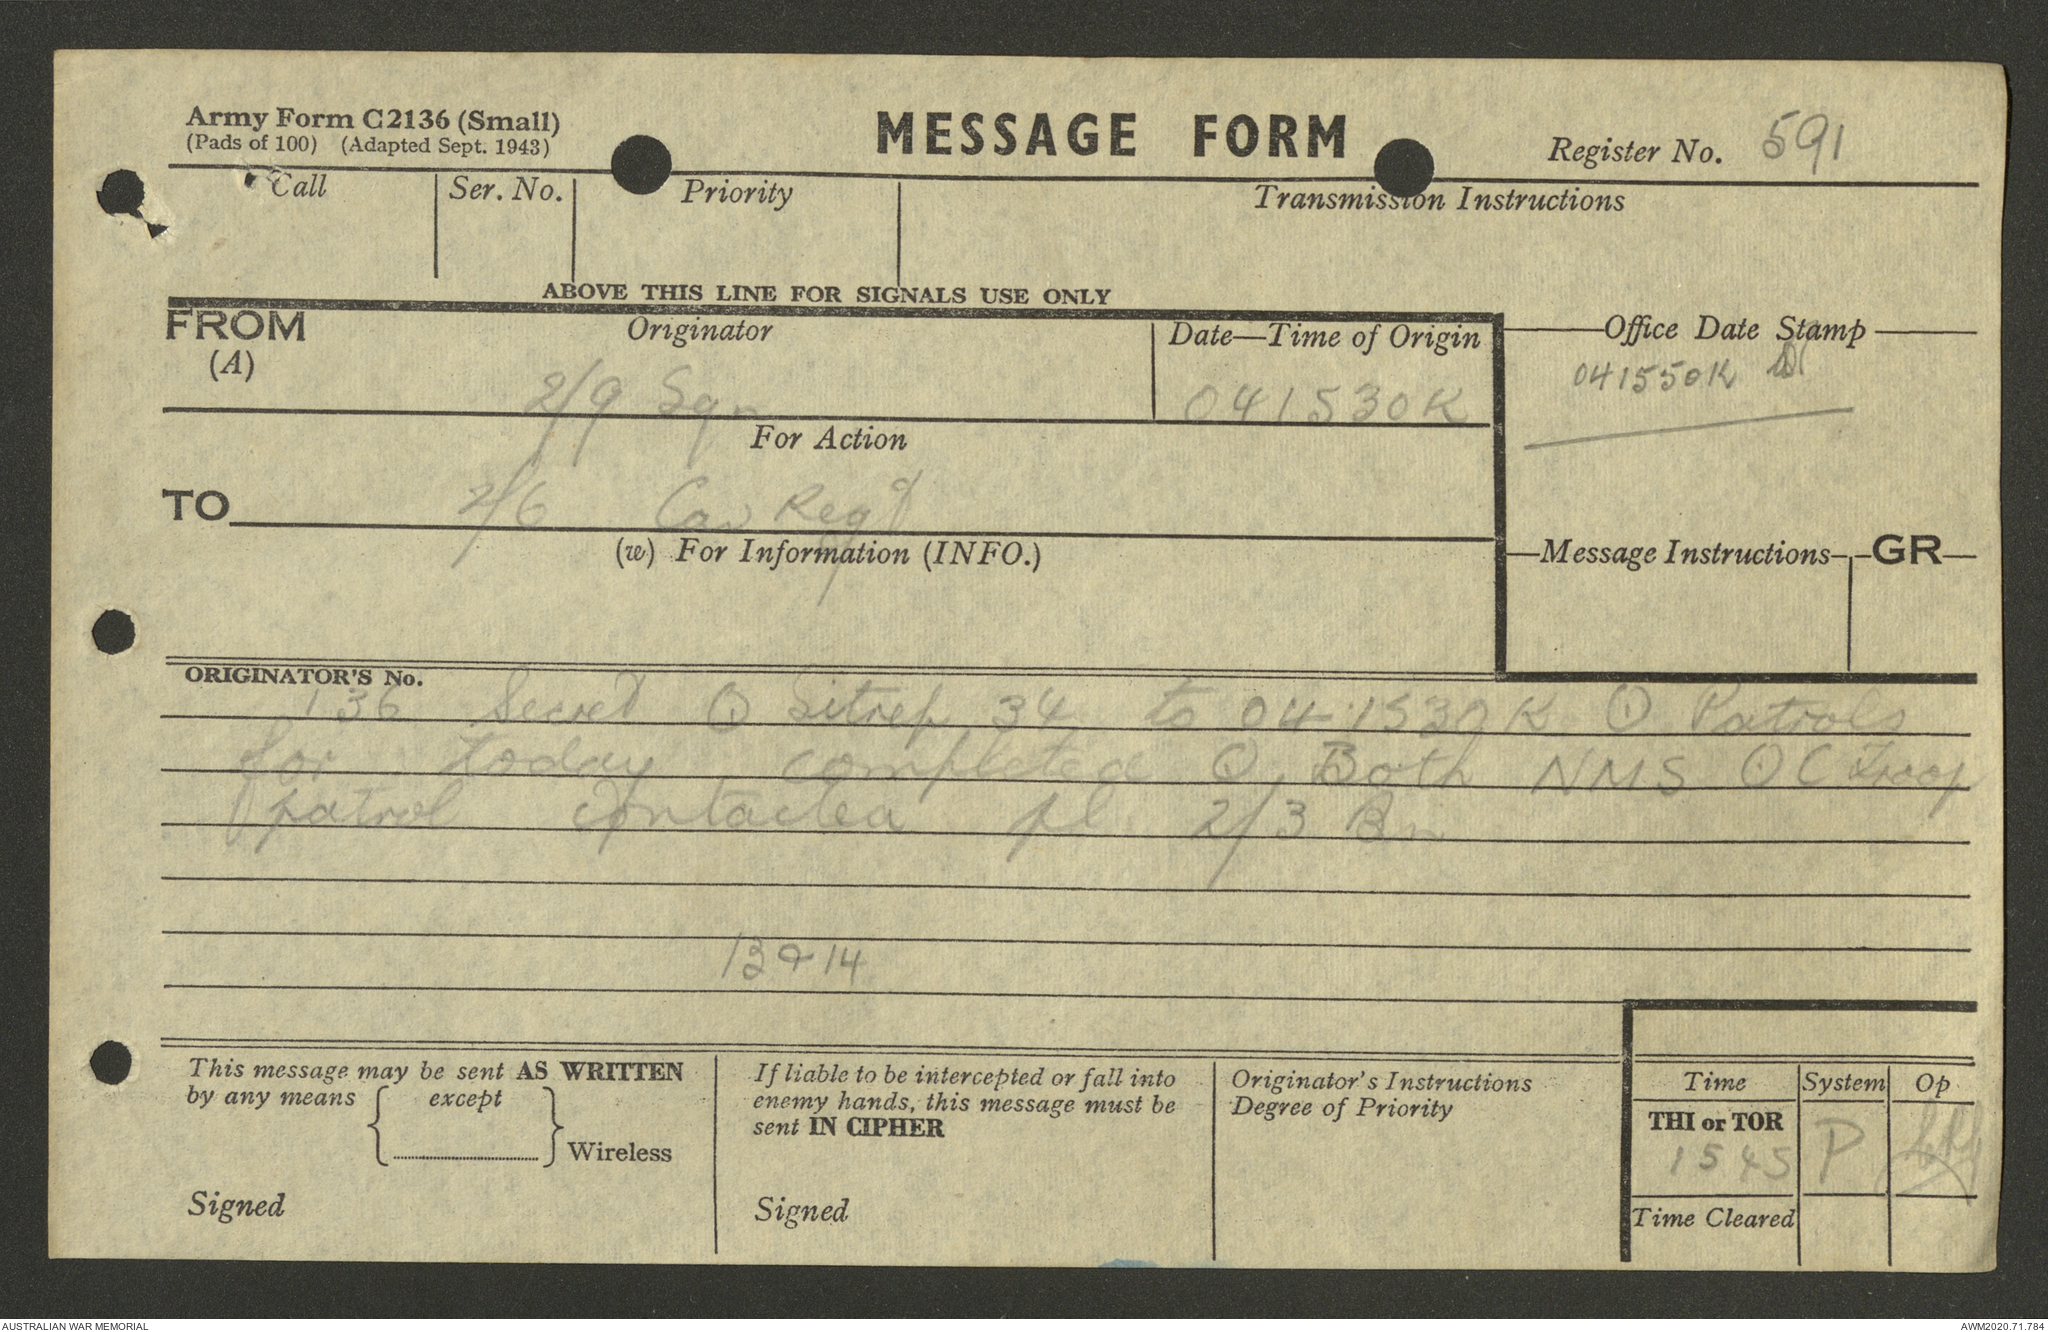 Army Form C2136 (Small)
(Pads of 100) (Adapted Sept. 1943)
MESSAGE FORM
Register No. 591
Call
Ser. No.
Priority
Transmission Instructions
ABOVE THIS LINE FOR SIGNALS USE ONLY
FROM
(A)
Originator
2/9 Sqn
Date—Time of Origin
041530K
Office Date Stamp
041550K
For Action
TO
2/6 Cav Regt
(w) For Information (INFO.)
Message Instructions
GR
ORIGINATOR'S No.
136 Secret ① Sitrep 34 to 041530K ① Patrols
for today completed ① Both NMS ① C Troop
patrol contacted pl 2/3 Bn
13 & 14
This message may be sent AS WRITTEN
by any means except
Wireless
Signed
If liable to be intercepted or fall into
enemy hands, this message must be
sent IN CIPHER
Signed
Originator's Instructions
Degree of Priority
Time System Op
THI or TOR
1545 P
Time Cleared
AUSTRALIAN WAR MEMORIAL
AWM2020.71.784